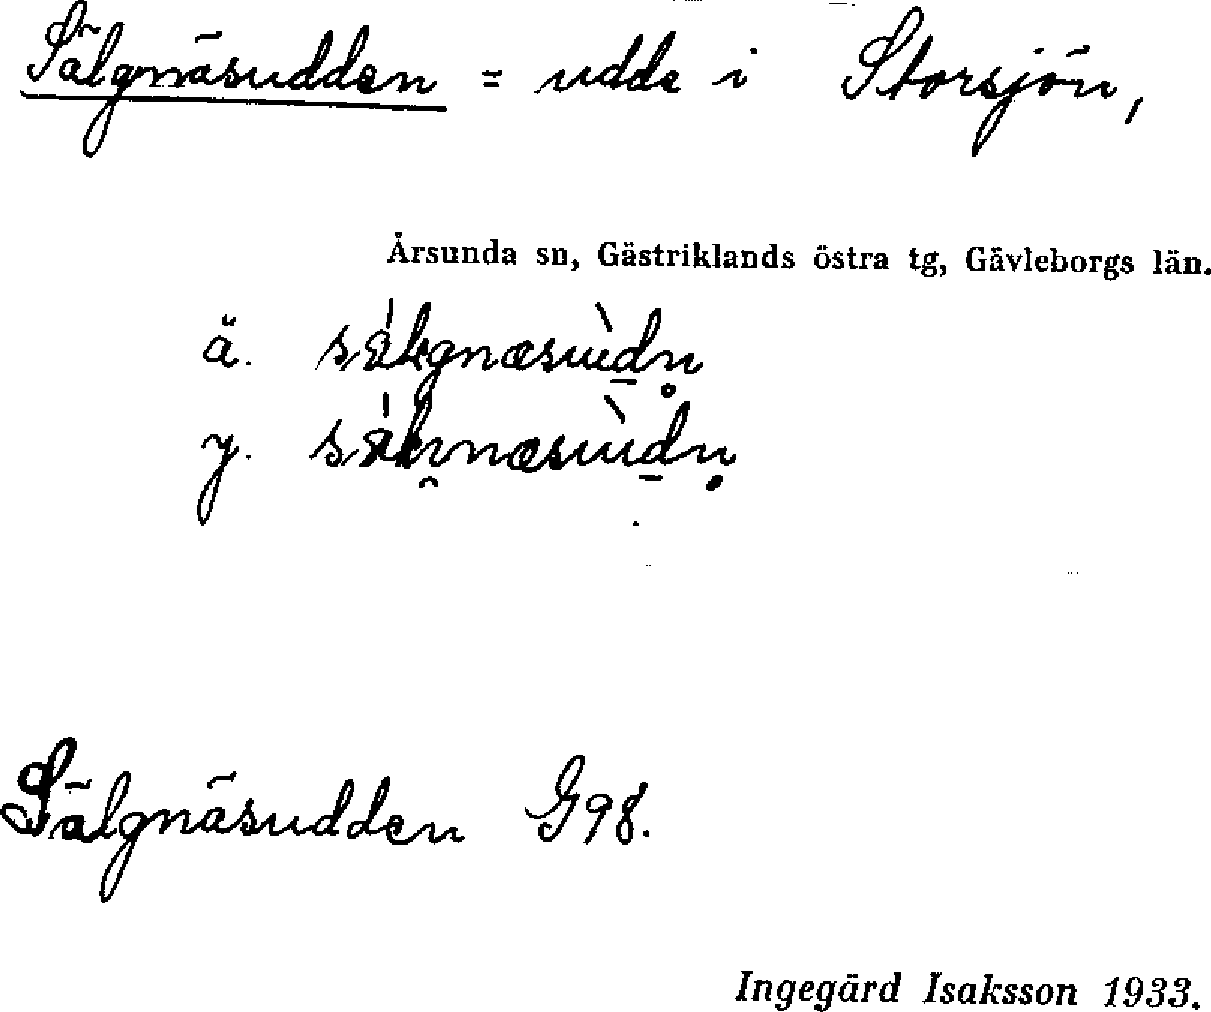 Sälgnäsudden = udde i Storsjön,
Årsunda sn, Gästriklands östra tg, Gävleborgs län.
ä.
y.
Sälgnäsudden G98.
Ingegärd Isaksson 1933.